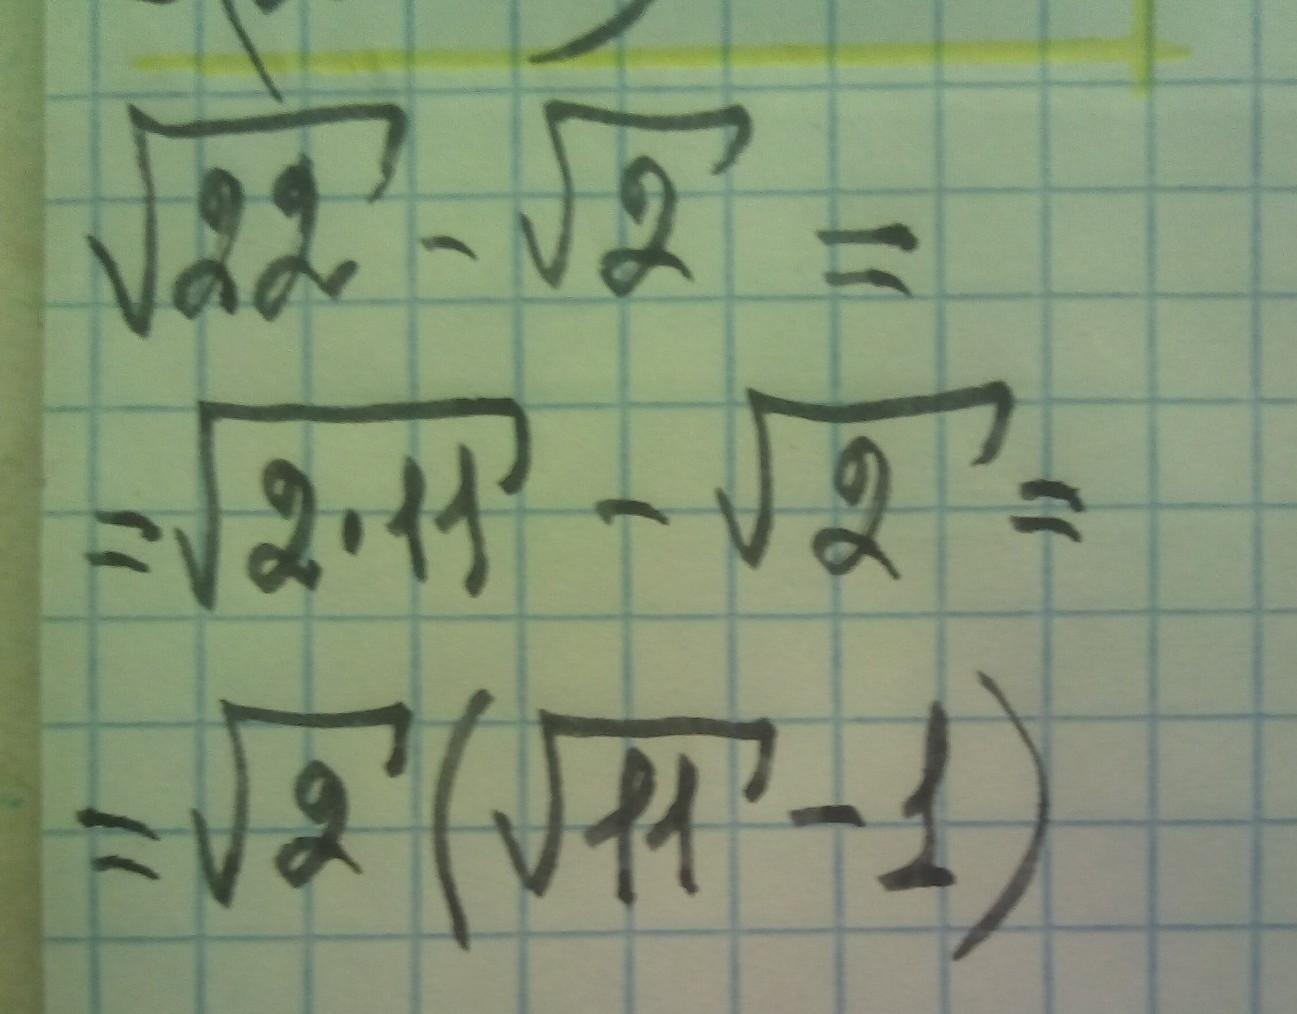 √22 - √2 =
= √2·11 - √2 =
= √2 (√11 - 1)